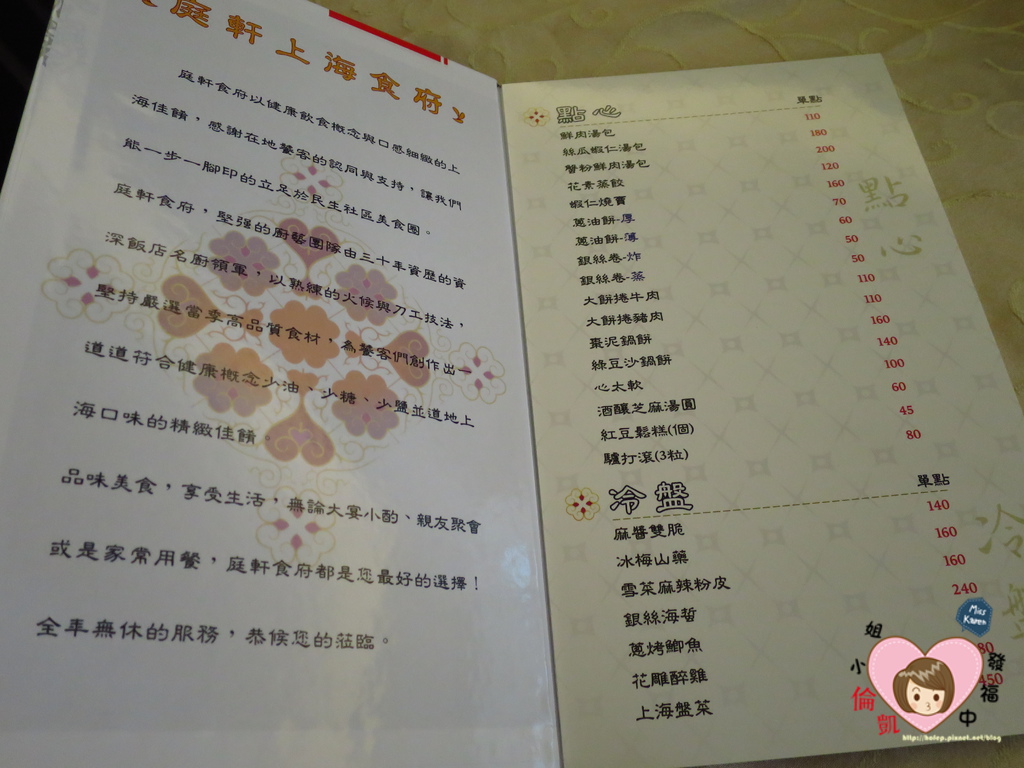 庭軒上海食府
庭軒食府以健康飲食概念與口感細緻的上
海佳餚，感謝在地饕客的認同與支持，讓我們
能一步一腳印的立足於民生社區美食圈。
庭軒食府，堅強的廚藝團隊由三十年資歷的資
深飯店名廚領軍，以熟練的火候與刀工技法，
堅持嚴選當季高品質食材，為饕客們創作出一
道道符合健康概念少油、少糖、少鹽並道地上
海口味的精緻佳餚。
品味美食，享受生活，無論大宴小酌、親友聚會
或是家常用餐，庭軒食府都是您最好的選擇！
全年無休的服務，恭候您的蒞臨。
點心 單點
鮮肉湯包 110
絲瓜蝦仁湯包 180
蟹粉鮮肉湯包 200
花素蒸餃 120
蝦仁燒賣 160
蔥油餅-厚 70
蔥油餅-薄 60
銀絲卷-炸 50
銀絲卷-蒸 50
大餅捲牛肉 110
大餅捲豬肉 110
棗泥鍋餅 160
綠豆沙鍋餅 140
心太軟 100
酒釀芝麻湯圓 60
紅豆鬆糕(個) 45
驢打滾(3粒) 80
點心
冷盤 單點
麻醬雙脆 140
冰梅山藥 160
雪菜麻辣粉皮 160
銀絲海蜇 240
蔥烤鯽魚
花雕醉雞 80
上海盤菜 450
冷盤
Miss Karen
小姐
倫凱
發福中
http://hofep.pixnet.net/blog